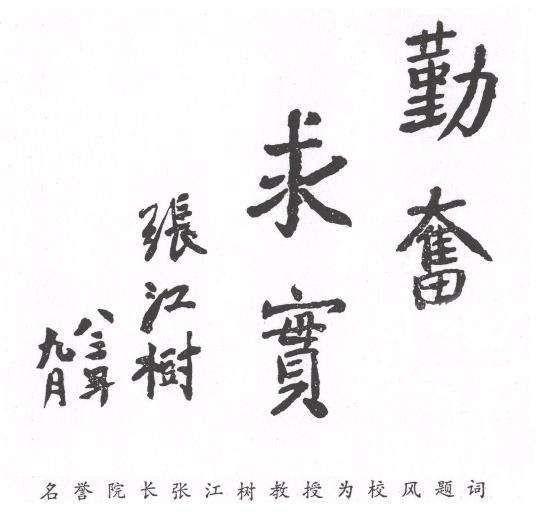 勤奮
求實
張江樹
八三年
九月
名誉院长张江树教授为校风题词